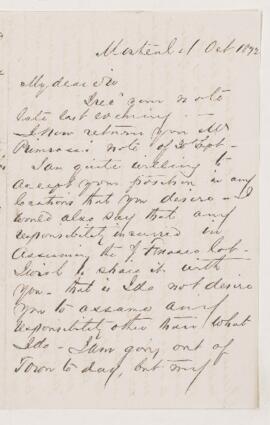 Montreal 1 Oct 1872
My dear Sir
I rec'd your note
late last evening -
I now return you Mr
Primrose's note of 30 Sept -
I am quite willing to
accept your position in any
locations that you desire - I
would also say that any
responsibility incurred in
assuming the
I wish to share it with
you - that is I do not desire
you to assume any
responsibility other than what
I do - I am going out of
Town to day, but my